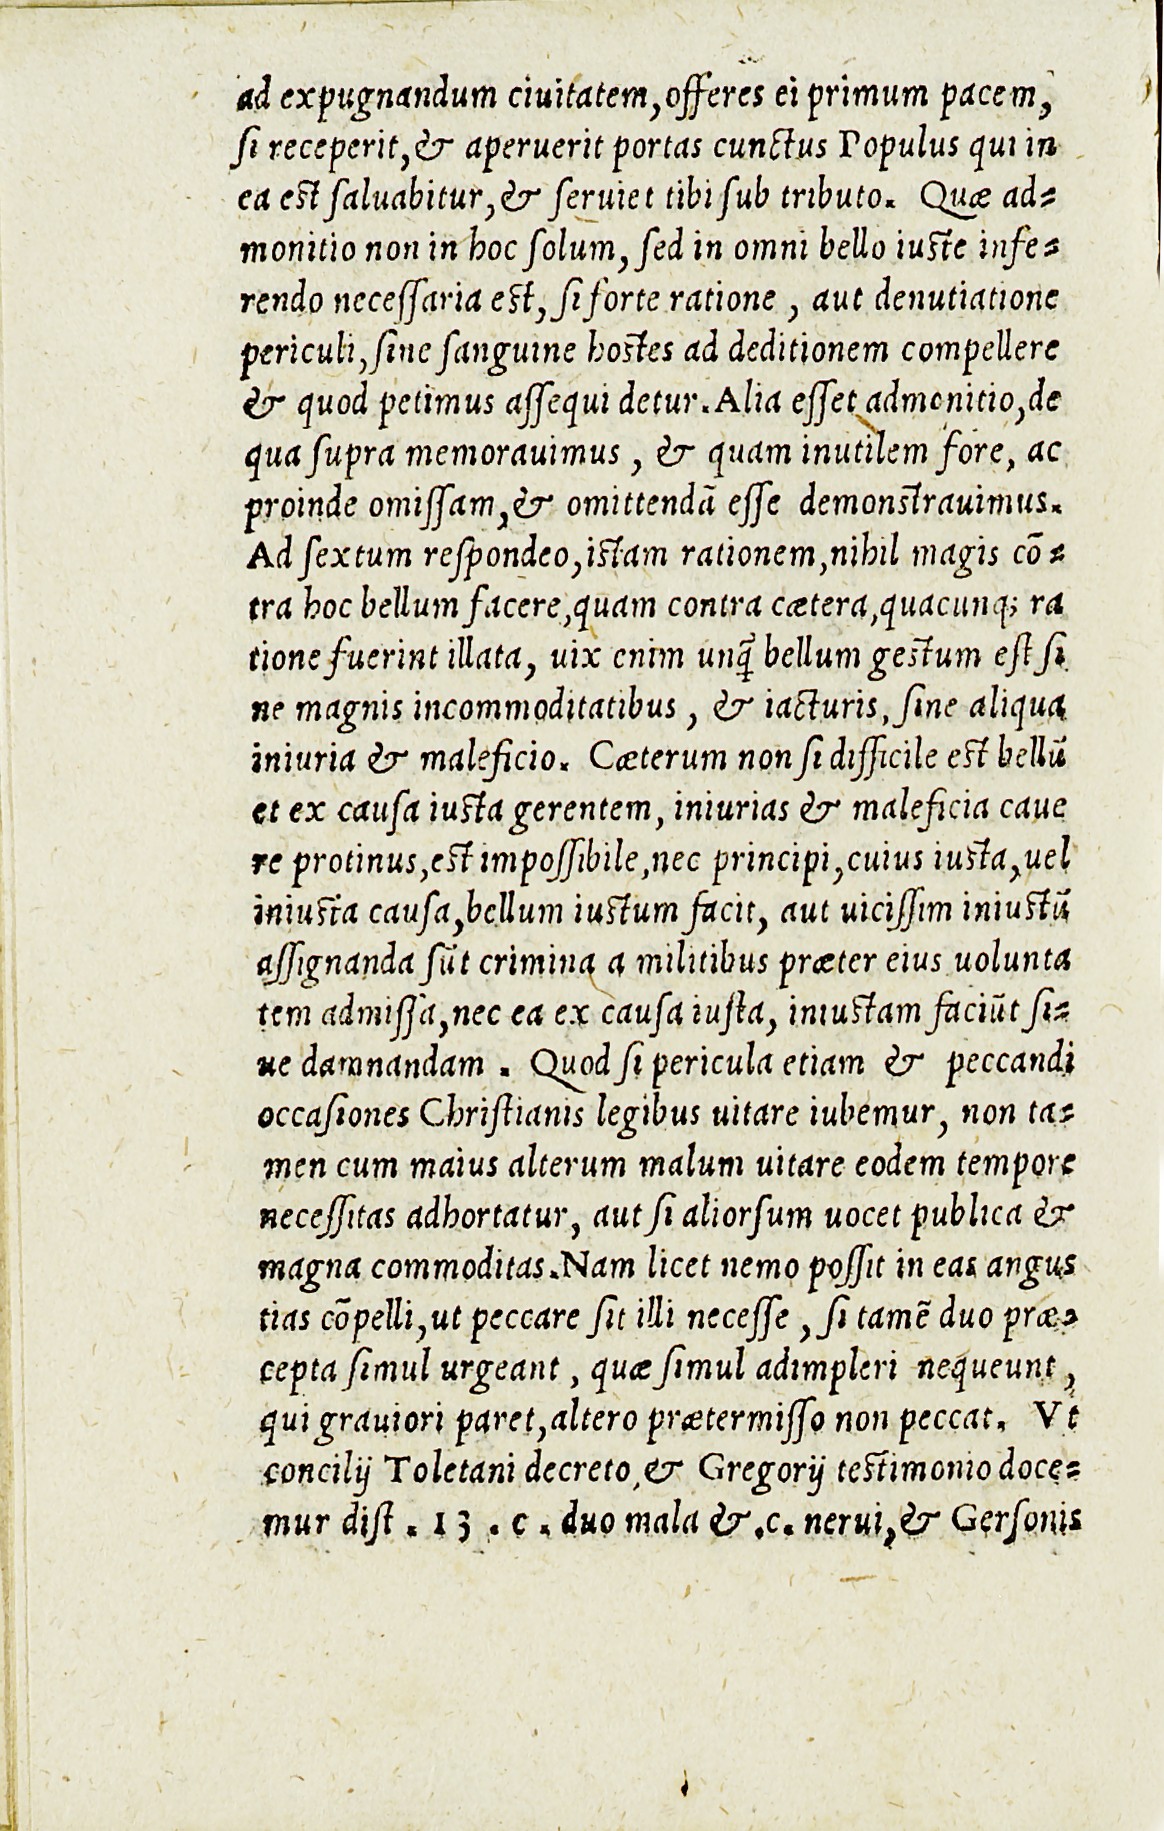 ad expugnandum ciuitatem, offeres ei primum pacem,
ſi receperit, & aperuerit portas cunctus Populus qui in
ea eſt ſaluabitur, & ſeruiet tibi ſub tributo. Quæ ad-
monitio non in hoc ſolum, ſed in omni bello iuſte infe-
rendo neceſſaria eſt, ſi forte ratione, aut denutiatione
periculi, ſine ſanguine hoſtes ad deditionem compellere
& quod petimus aſſequi detur. Alia eſſet admonitio, de
qua ſupra memorauimus, & quam inutilem fore, ac
proinde omiſſam, & omittendā eſſe demonſtrauimus.
Ad ſextum reſpondeo, iſtam rationem, nihil magis cō-
tra hoc bellum facere, quam contra cætera, quacunq; ra
tione fuerint illata, uix enim unq̃ bellum geſtum eſt ſi
ne magnis incommoditatibus, & iacturis, ſine aliqua
iniuria & maleficio. Cæterum non ſi difficile eſt bellū
et ex cauſa iuſta gerentem, iniurias & maleficia caue
re protinus, eſt impoſſibile, nec principi, cuius iuſta, uel
iniuſta cauſa, bellum iuſtum facit, aut uiciſſim iniuſtū
aſſignanda ſūt crimina a militibus præter eius uolunta
tem admiſſa, nec ea ex cauſa iuſta, iniuſtam faciūt ſi-
ue damnandam. Quod ſi pericula etiam & peccandi
occaſiones Chriſtianis legibus uitare iubemur, non ta-
men cum maius alterum malum uitare eodem tempore
neceſſitas adhortatur, aut ſi aliorſum uocet publica &
magna commoditas. Nam licet nemo poſſit in eas angus
tias cōpelli, ut peccare ſit illi neceſſe, ſi tamē duo præ-
cepta ſimul urgeant, quæ ſimul adimpleri nequeunt,
qui grauiori paret, altero prætermiſſo non peccat. Vt
concilij Toletani decreto, & Gregorij teſtimonio doce-
mur diſt. 13. c. duo mala &. c. nerui, & Gerſonis